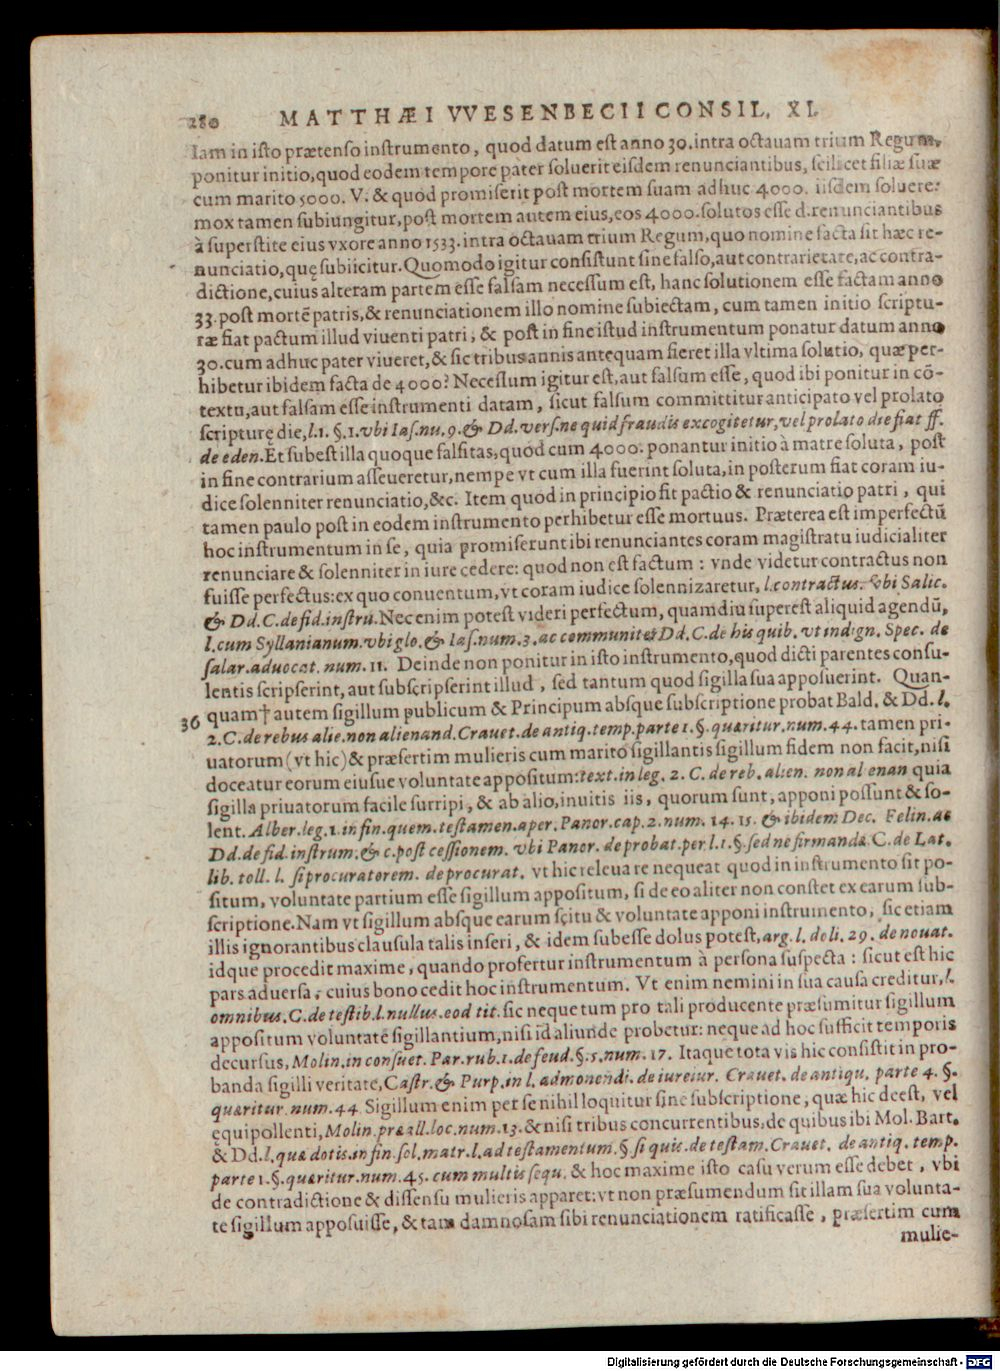 280 MATTHÆI VVESENBECII CONSIL. XL
Iam in isto prætenso instrumento, quod datum est anno 30. intra octauam trium Regum,
ponitur initio, quod eodem tempore pater soluerit eisdem renunciantibus, scilicet filiæ suæ
cum marito 5000. V. & quod promiserit post mortem suam adhuc 4000. iisdem soluere:
mox tamen subiungitur, post mortem autem eius, eos 4000. solutos esse d. renunciantibus
à superstite eius vxore anno 1533. intra octauam trium Regum, quo nomine facta sit hæc re-
nunciatio, quę subiicitur. Quomodo igitur consistunt sine falso, aut contrarietate, ac contra-
dictione, cuius alteram partem esse falsam necessum est, hanc solutionem esse factam anno
33. post mortē patris, & renunciationem illo nomine subiectam, cum tamen initio scriptu-
ræ fiat pactum illud viuenti patri, & post in fine istud instrumentum ponatur datum anno
30. cum adhuc pater viueret, & sic tribus annis antequam fieret illa vltima solutio, quæ per-
hibetur ibidem facta de 4000? Necessum igitur est, aut falsum esse, quod ibi ponitur in cō-
textu, aut falsam esse instrumenti datam, sicut falsum committitur anticipato vel prolato
scripturę die, l. 1. §. 1. vbi Ias. nu. 9. & Dd. vers. ne quid fraudis excogitetur, vel prolato die fiat ff.
de eden. Et subest illa quoque falsitas, quod cum 4000. ponantur initio à matre soluta, post
in fine contrarium asseueretur, nempe vt cum illa fuerint soluta, in posterum fiat coram iu-
dice solenniter renunciatio, &c. Item quod in principio fit pactio & renunciatio patri, qui
tamen paulo post in eodem instrumento perhibetur esse mortuus. Præterea est imperfectū
hoc instrumentum in se, quia promiserunt ibi renunciantes coram magistratu iudicialiter
renunciare & solenniter in iure cedere: quod non est factum: vnde videtur contractus non
fuisse perfectus: ex quo conuentum, vt coram iudice solennizaretur, l. contractus. vbi Salic.
& Dd. C. de fid. instrū. Nec enim potest videri perfectum, quamdiu superest aliquid agendū,
l. cum Syllanianum. vbi glo. & Ias. num. 3. ac communiter Dd. C. de his quib. vt indign. Spec. de
salar. aduocat. num. 11. Deinde non ponitur in isto instrumento, quod dicti parentes consu-
lentis scripserint, aut subscripserint illud, sed tantum quod sigilla sua apposuerint. Quan-
36 quam† autem sigillum publicum & Principum absque subscriptione probat Bald. & Dd. l.
2. C. de rebus alie. non alienand. Crauet. de antiq. temp. parte 1. §. quæritur. num. 44. tamen pri-
uatorum (vt hic) & præsertim mulieris cum marito sigillantis sigillum fidem non facit, nisi
doceatur eorum eiusue voluntate appositum: text. in leg. 2. C. de reb. alien. non alienan quia
sigilla priuatorum facile surripi, & ab alio, inuitis iis, quorum sunt, apponi possunt & so-
lent. Alber. leg. 1. in fin. quem. testamen. aper. Panor. cap. 2. num. 14. 15. & ibidem Dec. Felin. ac
Dd. de fid. instrum. & c. post cessionem. vbi Panor. de probat. per l. 1. §. sed ne firmanda C. de Lat.
lib. toll. l. si procuratorem. de procurat. vt hic releuare nequeat quod in instrumento sit po-
situm, voluntate partium esse sigillum appositum, si de eo aliter non constet ex earum sub-
scriptione. Nam vt sigillum absque earum scitu & voluntate apponi instrumento, sic etiam
illis ignorantibus clausula talis inseri, & idem subesse dolus potest, arg. l. doli. 29. de nouat.
idque procedit maxime, quando profertur instrumentum à persona suspecta: sicut est hic
pars aduersa, cuius bono cedit hoc instrumentum. Vt enim nemini in sua causa creditur, l.
omnibus. C. de testib. l. nullus. eod tit. sic neque tum pro tali producente præsumitur sigillum
appositum voluntate sigillantium, nisi id aliunde probetur: neque ad hoc sufficit temporis
decursus, Molin. in consuet. Par. rub. 1. de feud. §. 5. num. 17. Itaque tota vis hic consistit in pro-
banda sigilli veritate, Castr. & Purp. in l. admonendi. de iureiur. Crauet. de antiqu. parte 4. §.
quæritur. num. 44 Sigillum enim per se nihil loquitur sine subscriptione, quæ hic deest, vel
ęquipollenti, Molin. præall. loc. num. 13. & nisi tribus concurrentibus, de quibus ibi Mol. Bart.
& Dd. l. quæ dotis. in fin. sol. matr. l. ad testamentum. § si quis. de testam. Crauet. de antiq. temp.
parte 1. §. quæritur. num. 45. cum multis sequ. & hoc maxime isto casu verum esse debet, vbi
de contradictione & dissensu mulieris apparet: vt non præsumendum sit illam sua volunta-
te sigillum apposuisse, & tam damnosam sibi renunciationem ratificasse, præsertim cum
mulie-
Digitalisierung gefördert durch die Deutsche Forschungsgemeinschaft - DFG